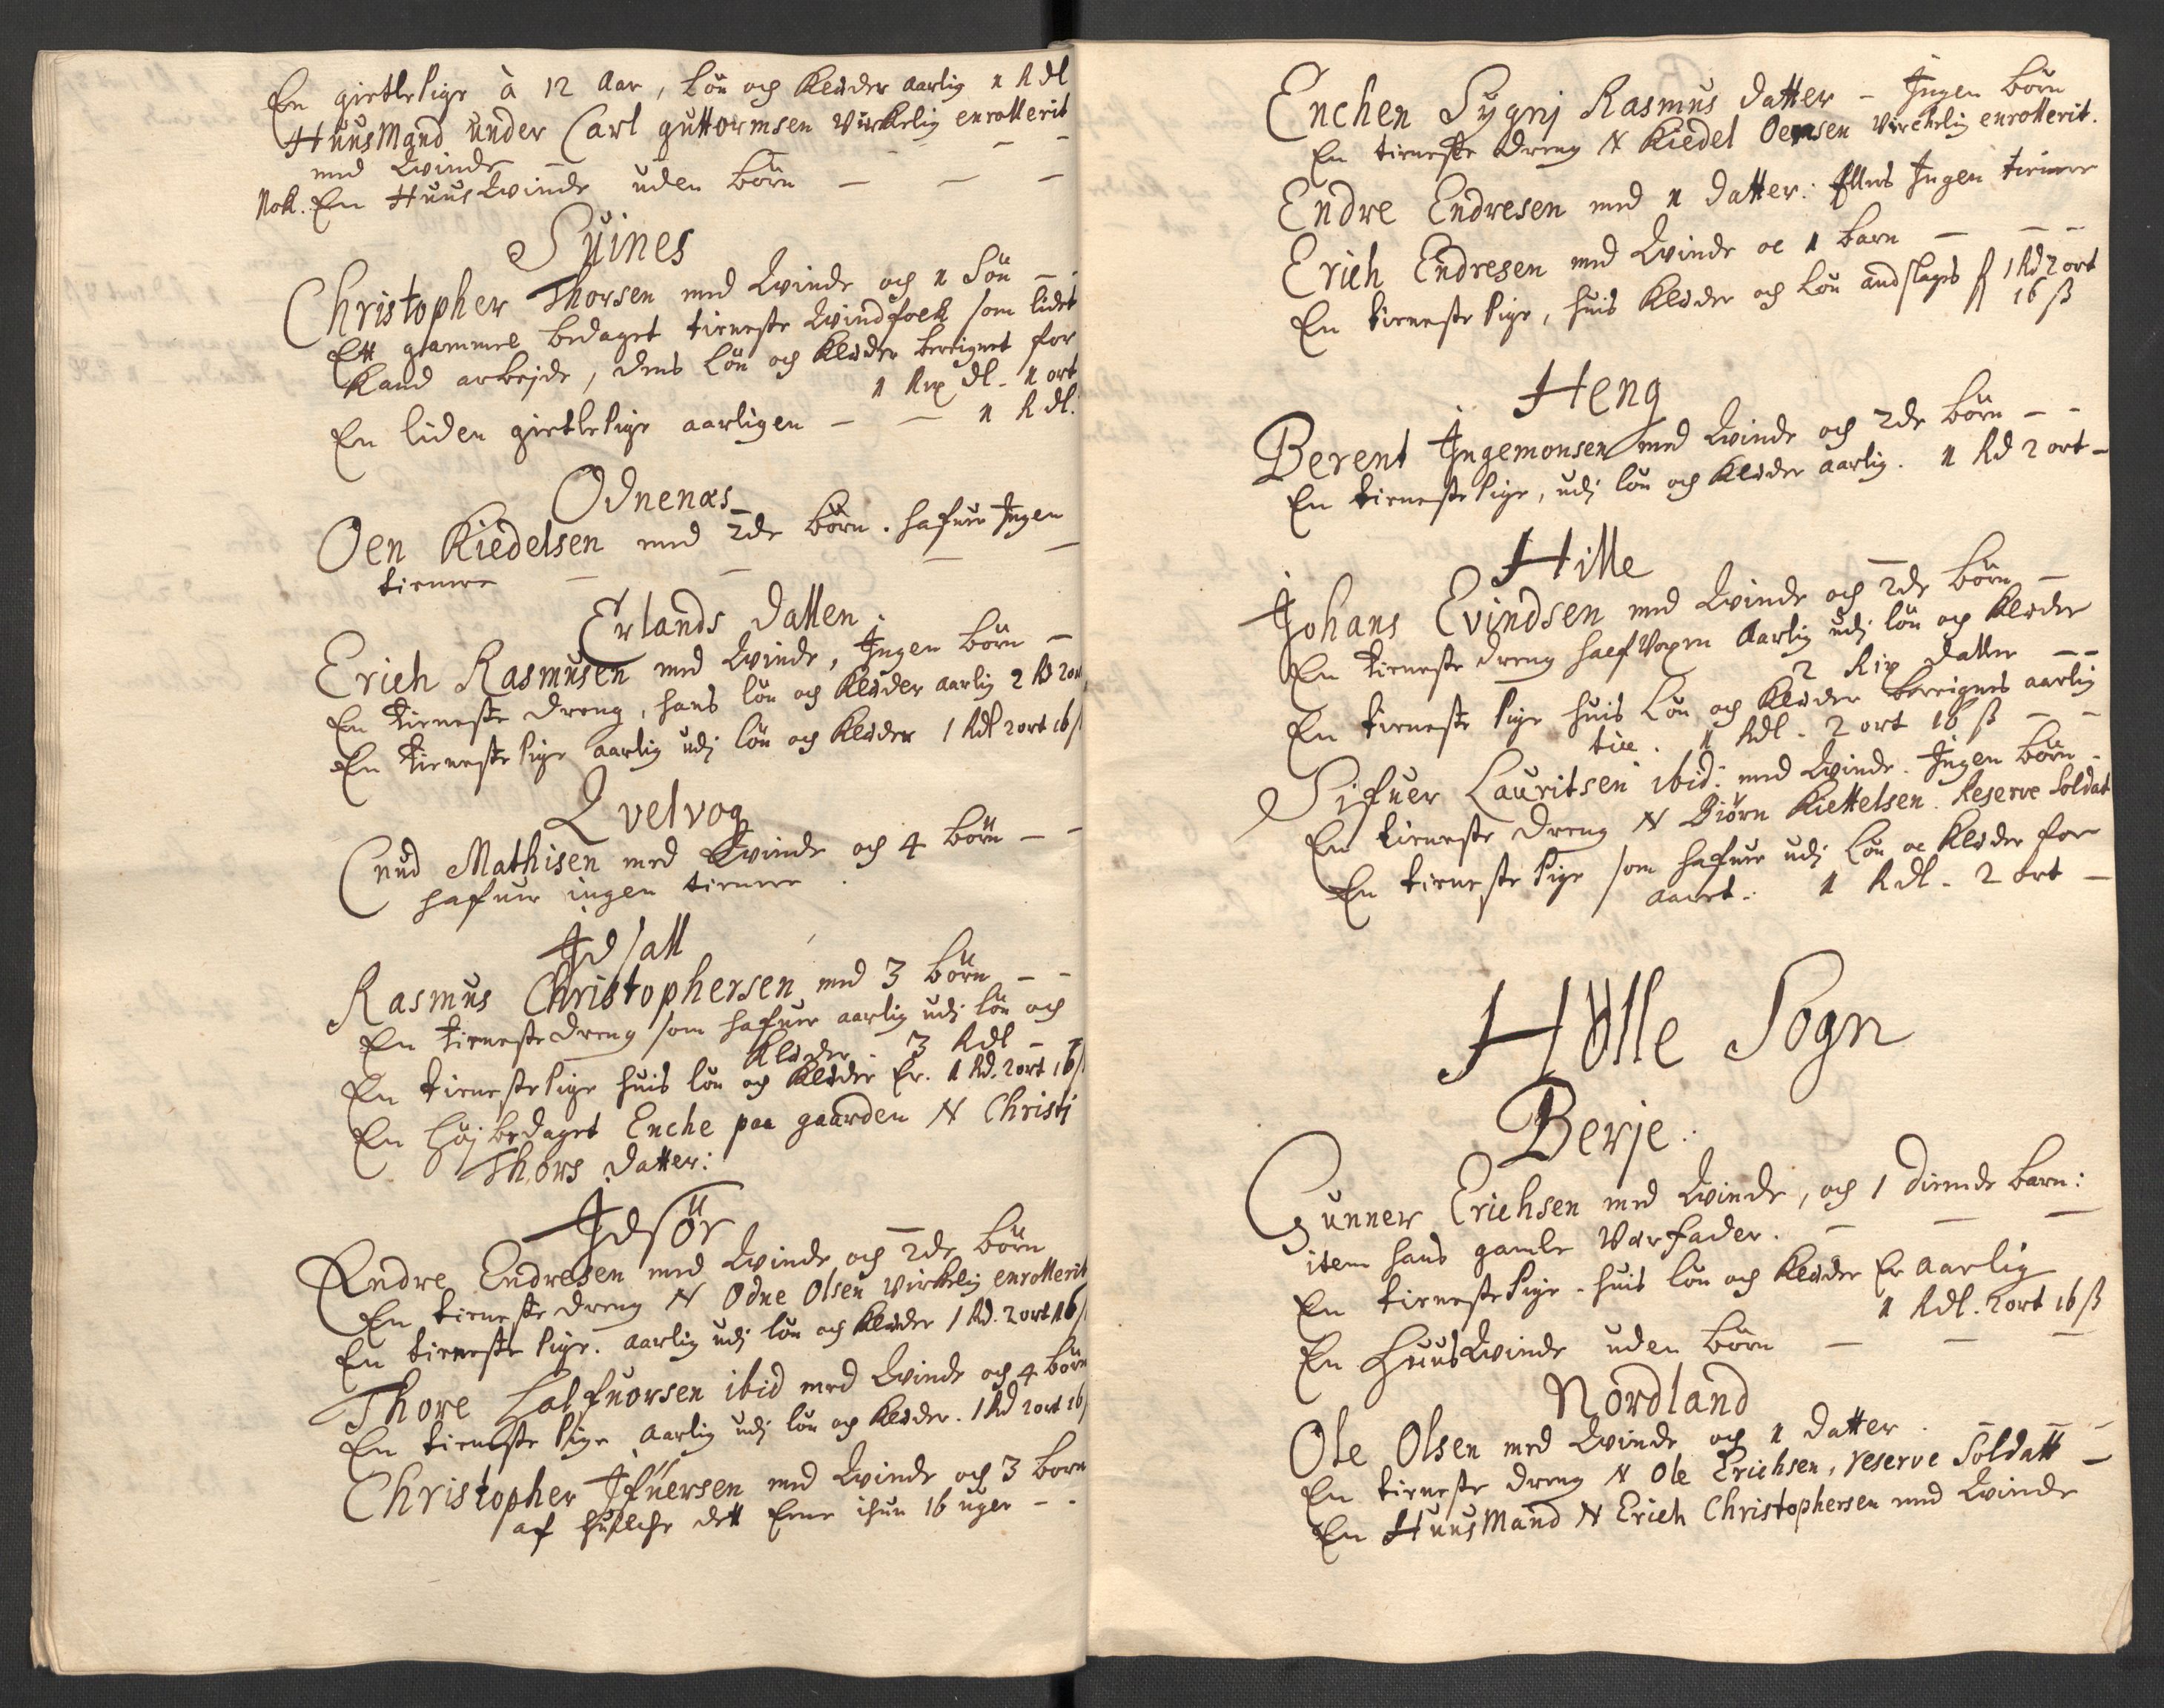 En gietlepige à 12 Aar, Løn och Klæder aarlig 1 Rdl
HuusMand under Carl guttormsen virkelig enrollerit
med Qvinde — — —
Nok. En HuusQvinde uden Børn — — —
Suines
Christopher Thorsen med Qvinde och 1 Søn — -
Ett gammel bedaget tieneste Qvindfolk som lidet
Kand arbejde, dens Løn och Klæder bereignet for
1 Rix dl. 1 ort
En liden gietlepige aarligen — — 1 Rdl.
Odnenæs
Oen Kiedelsen med 2de Børn. hafuer Ingen
tienere — — — —
Erlands Dallen.
Erich Rasmusen med Qvinde, Ingen Børn —
En tieneste dreng, hans løn och Klæder aarlig 2 Rd 2 ort
En tieneste pige aarlig udj løn och Klæder 1 Rdl 2 ort 16 ß
Qvelvog
Cnud Mathisen med Qvinde och 4 Børn — -
hafuer ingen tienere.
Idsall
Rasmus Christophersen med 3 Børn — -
En tienestedreng som hafuer aarlig udj løn och
Klæder - 3 Rdl — -
En tienestepige huis løn og Klæder Er. 1 Rd. 2 ort 16 ß
En Høj bedaget Enche paa gaarden N Christj
Thors datter:
Idsör
Endre Endresen med Qvinde och 2de Børn
En tieneste dreng N Odne Olsen virkelig enrollerit
En tieneste pige. aarlig udj løn och Klæder 1 Rd. 2 ort 16 ß
Thore Halfuorsen ibid med Qvinde och 4 Børn
En tieneste pige Aarlig udj løn og Klæder. 1 Rd 2 ort 16 ß
Christopher Ifuersen med Qvinde och 3 born
af huilche dett Eene ikun 16 uger — -
Enchen Sygnj Rasmus datter — Ingen Børn
En tieneste dreng N Kiedel Oensen virchelig enrollerit.
Endre Endresen med 1 datter: Ellers Ingen tienere
Erich Endresen med Qvinde oc 1 barn — — —
En tieneste pige, huis Klæder och Løn andslages f 1 Rd 2 ort
16 ß
Heng
Berent Ingemonsen med Qvinde och 2de Børn — -
En tieneste pige, udj løn och Klæder aarlig. 1 Rd 2 ort —
Hille
Johans Evindsen med Qvinde och 2de Børn —
En tieneste dreng half voxen Aarlig udj løn og Klæder
2 Rix daller — —
En tieneste pige huis Løn og Klæder bereignes aarlig
till. 1 Rdl. 2 ort 16 ß — -
Sifuer Lauritsen ibid: med Qvinde. Ingen Børn -
En tieneste dreng N Biörn Kiettelsen. Reserve Soldat
En tieneste pige som hafuer udj Løn oc Klæder for
aaret. 1 Rdl. 2 ort —
Hölle Sogn
Berje.
Gunner Erichsen med Qvinde, och 1 diende barn:
item hans gamle Værfader. — — —
En tienestepige. huis løn og Klæder Er Aarlig
1 Rdl. 2 ort 16 ß
En HuusQvinde uden Børn — — —
Nordland
Ole Olsen med Qvinde och 1 datter. —
En tieneste dreng N Ole Erichsen, reserve Soldatt —
En HuusMand N Erich Christophersen med Qvinde